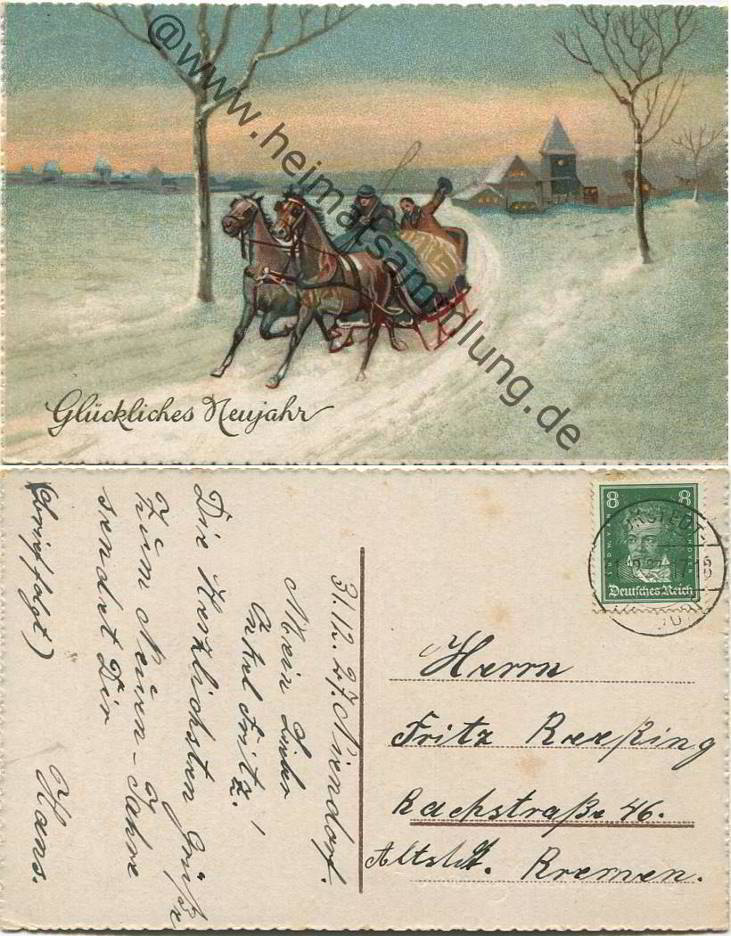 @www.heimatsammlung.de
Glückliches Neujahr
31.12.27. Niendorf.
Mein Lieber
Onkel Fritz!
Die Herzlichsten Grüße
zum Neuen-Jahre
sendet Dir
Hans.
(brief folgt)
8 8
Deutsches Reich
Herrn
Fritz
straße 46.
Bremen.